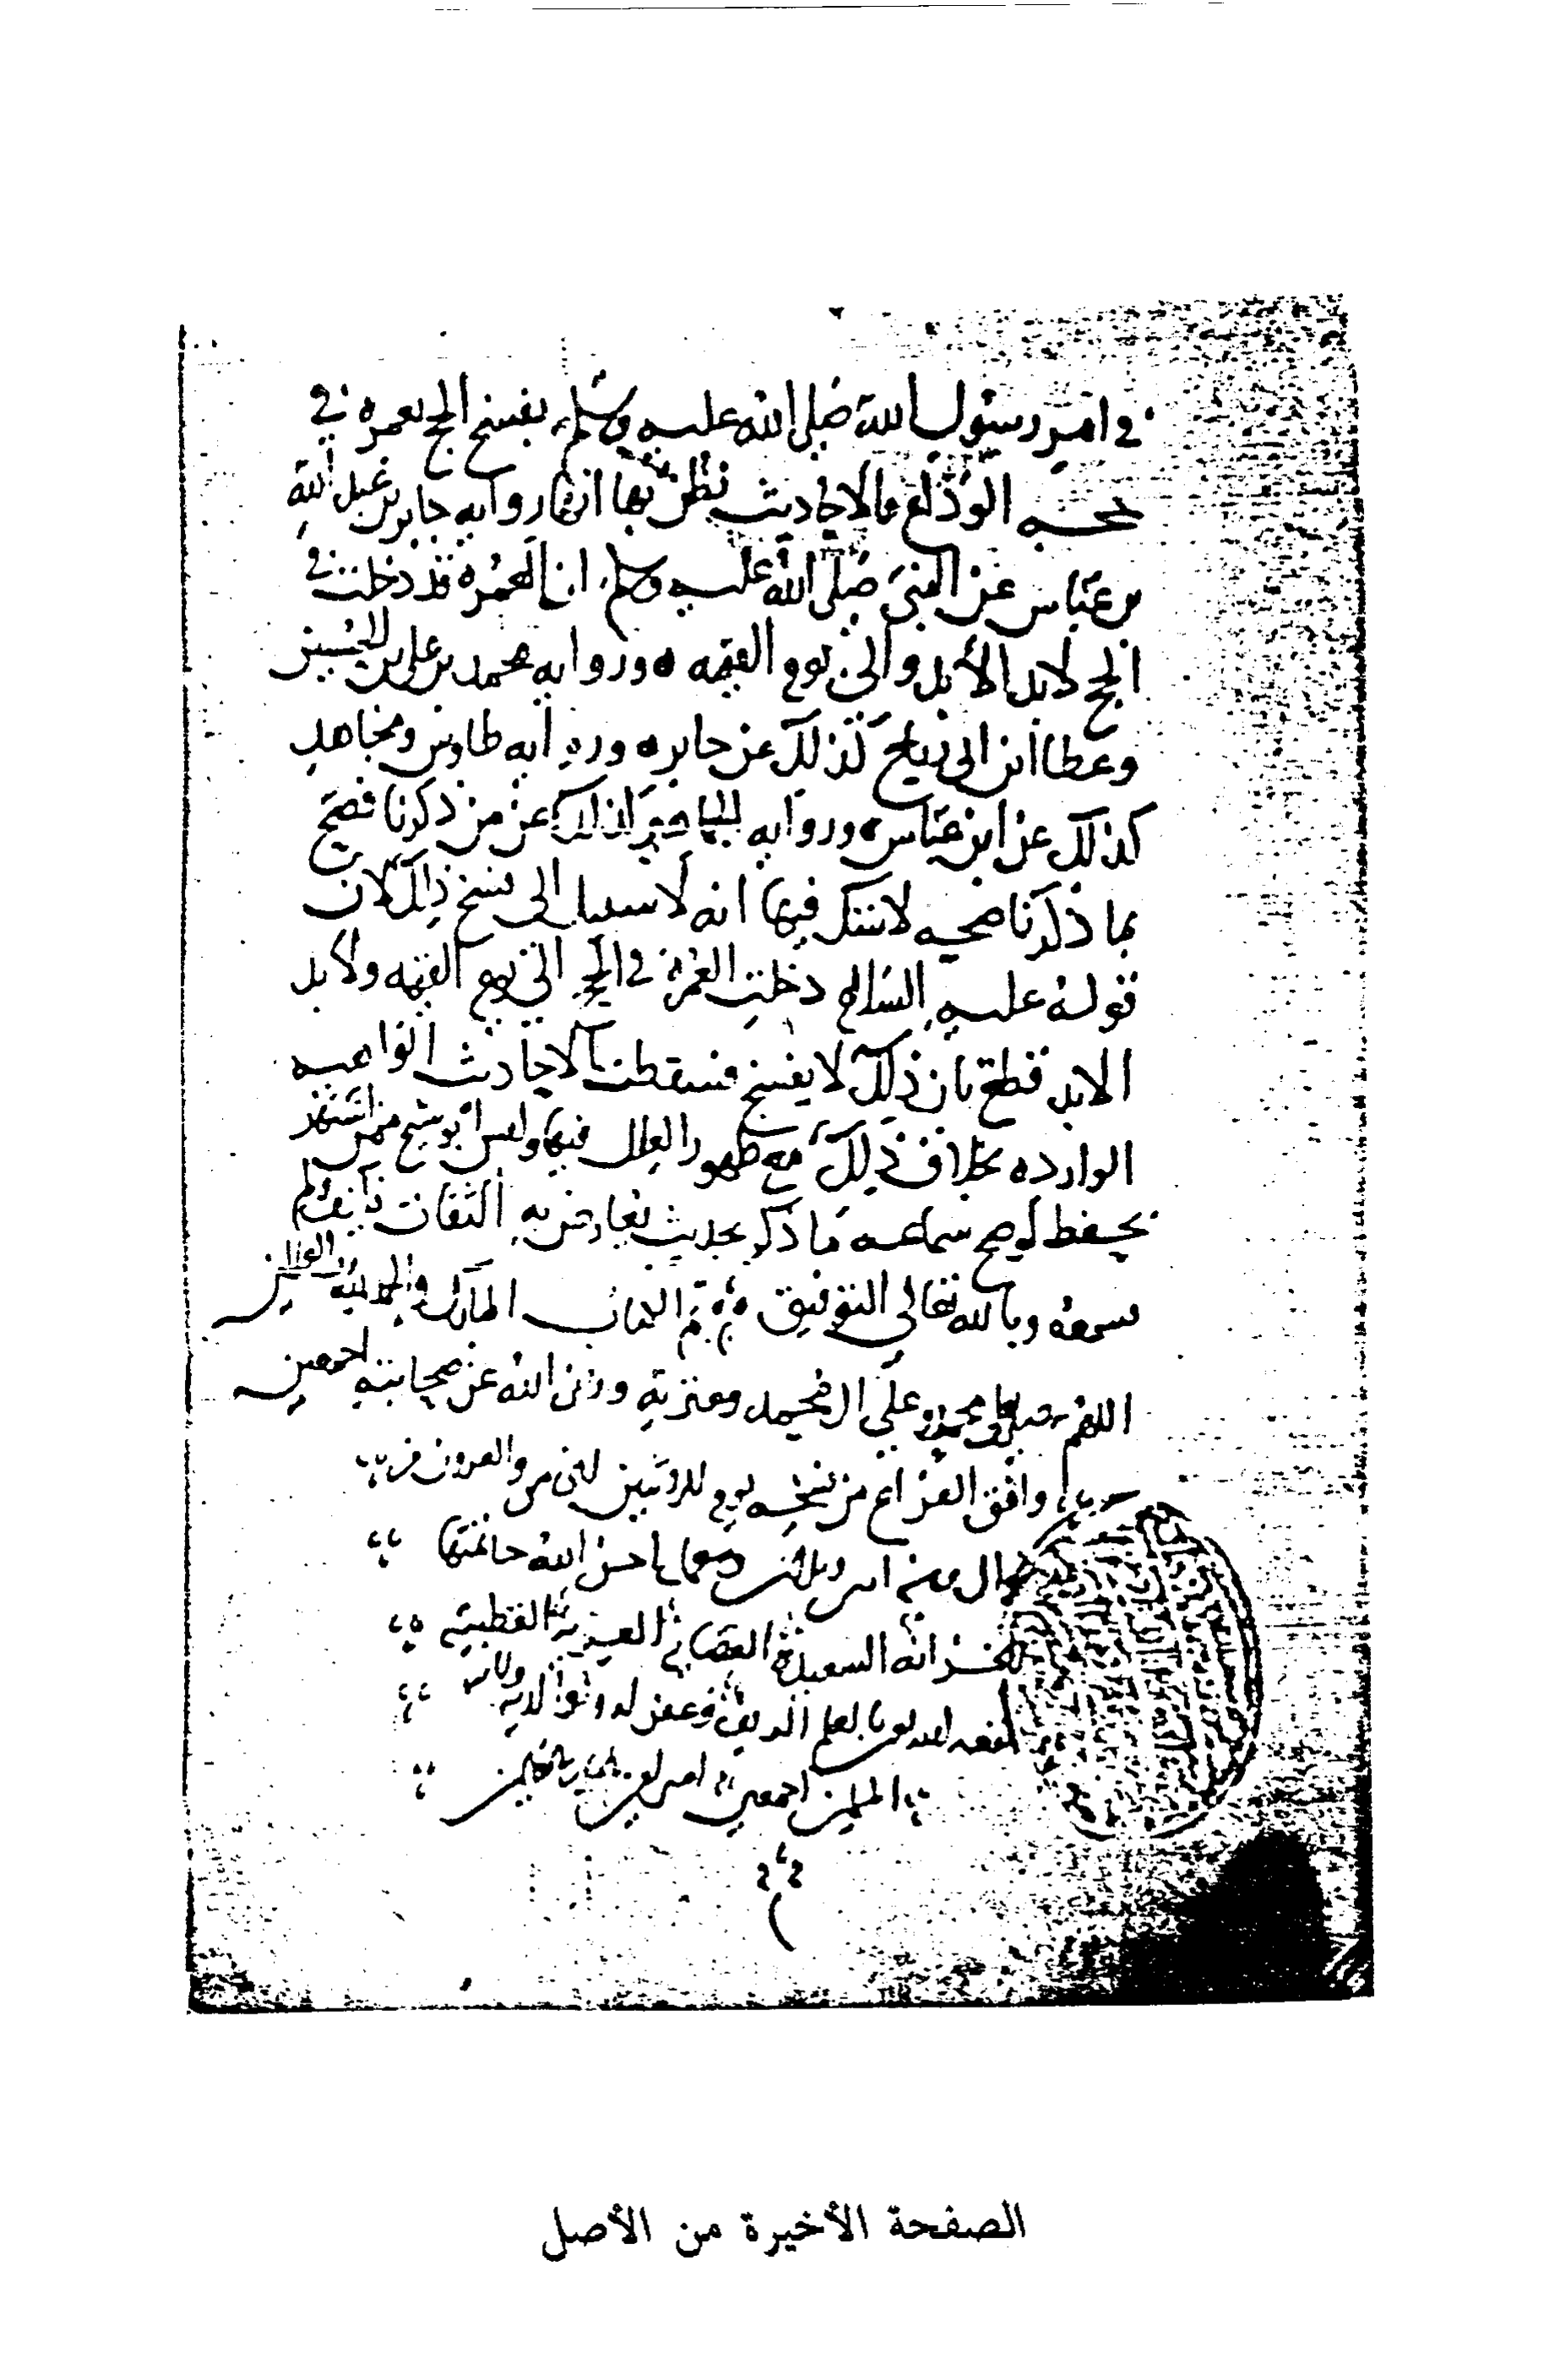 في امر رسول الله صلى الله عليه وسلم بفسخ الحج بعمره في
حجه الوداع فالاحاديث نظن بها انها روايه جابر بن عبد الله
بن عباس عن النبي صلى الله عليه وسلم ان العمره قد دخلت في
الحج لابد الأبد والى يوم القيمه ورواية محمد بن علي بن الحسين
وعطا ابن ابي رباح كذلك عن جابر ورواية طاوس ومجاهد
كذلك عن ابن عباس ورواية عن من ذكرنا فصح
بما ذكرنا صحيه لا شك فيها انه لا سبيل الى نسخ ذلك لان
قوله عليه السلام دخلت العمرة في الحج الى يوم القيمه ولابد
الابد قطع بان ذلك لا يفسخ فسقطت الاحاديث الواهيه
الوارده بخلاف ذلك مع ظهور العلل فيها وليس ابو شيخ ممن اشتهر
بحفظ لو صح سماعه ما ذكر بحديث يعارض به الثقات كيف ولم
سمعه وبالله تعالى التوفيق تم الكتاب المبارك والحمد لله رب العالمين
اللهم صل على محمد وعلى ال محمد وعترته ورضى الله عن صحابته اجمعين
وافق الفراغ من نسخه يوم الاثنين والعشرون من
احسن الله خاتمتها
للخزانة السعيدة
نفعه الله بالعلم الشريف وغفر له ولوالديه
المسلمين اجمعين امين
الصفحة الأخيرة من الأصل